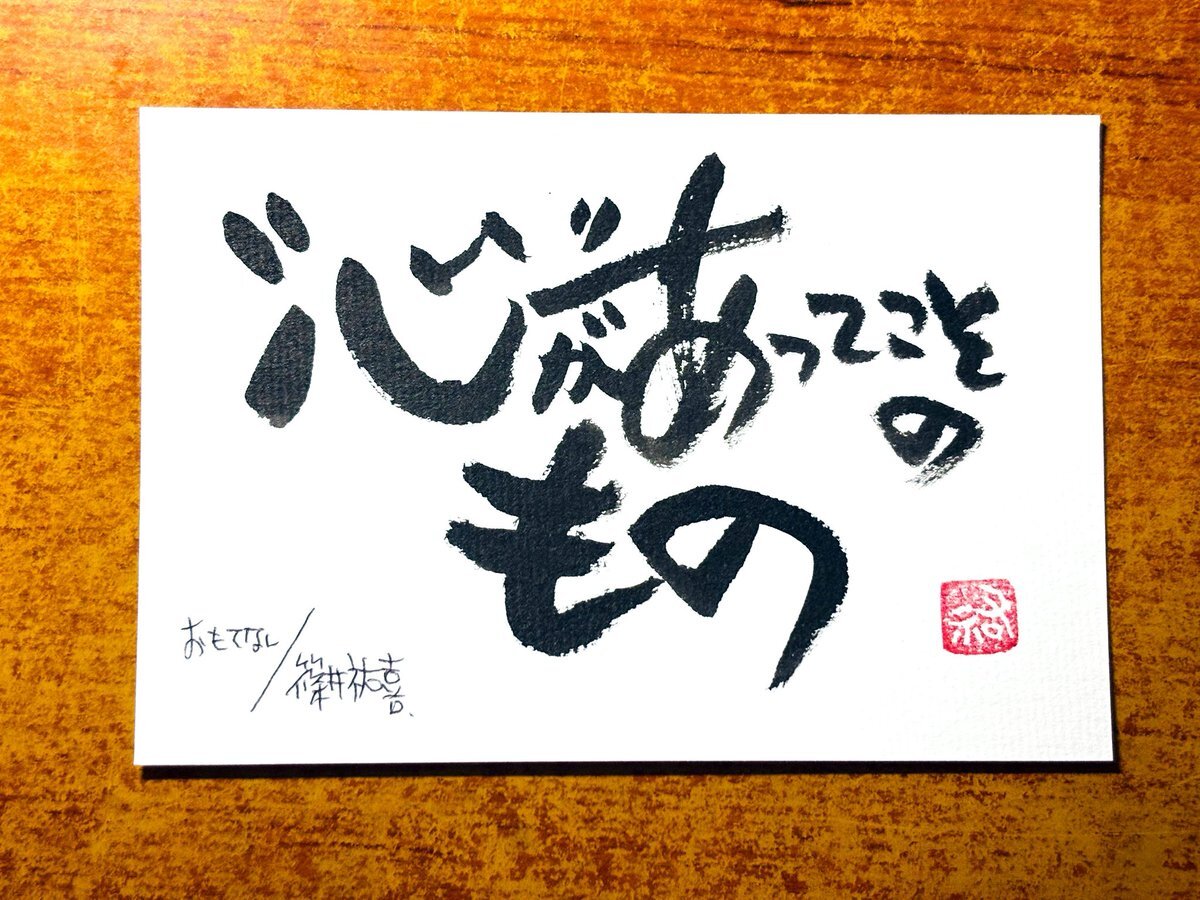 心があってこそ
の
もの
おもてなし/篠井祐喜.